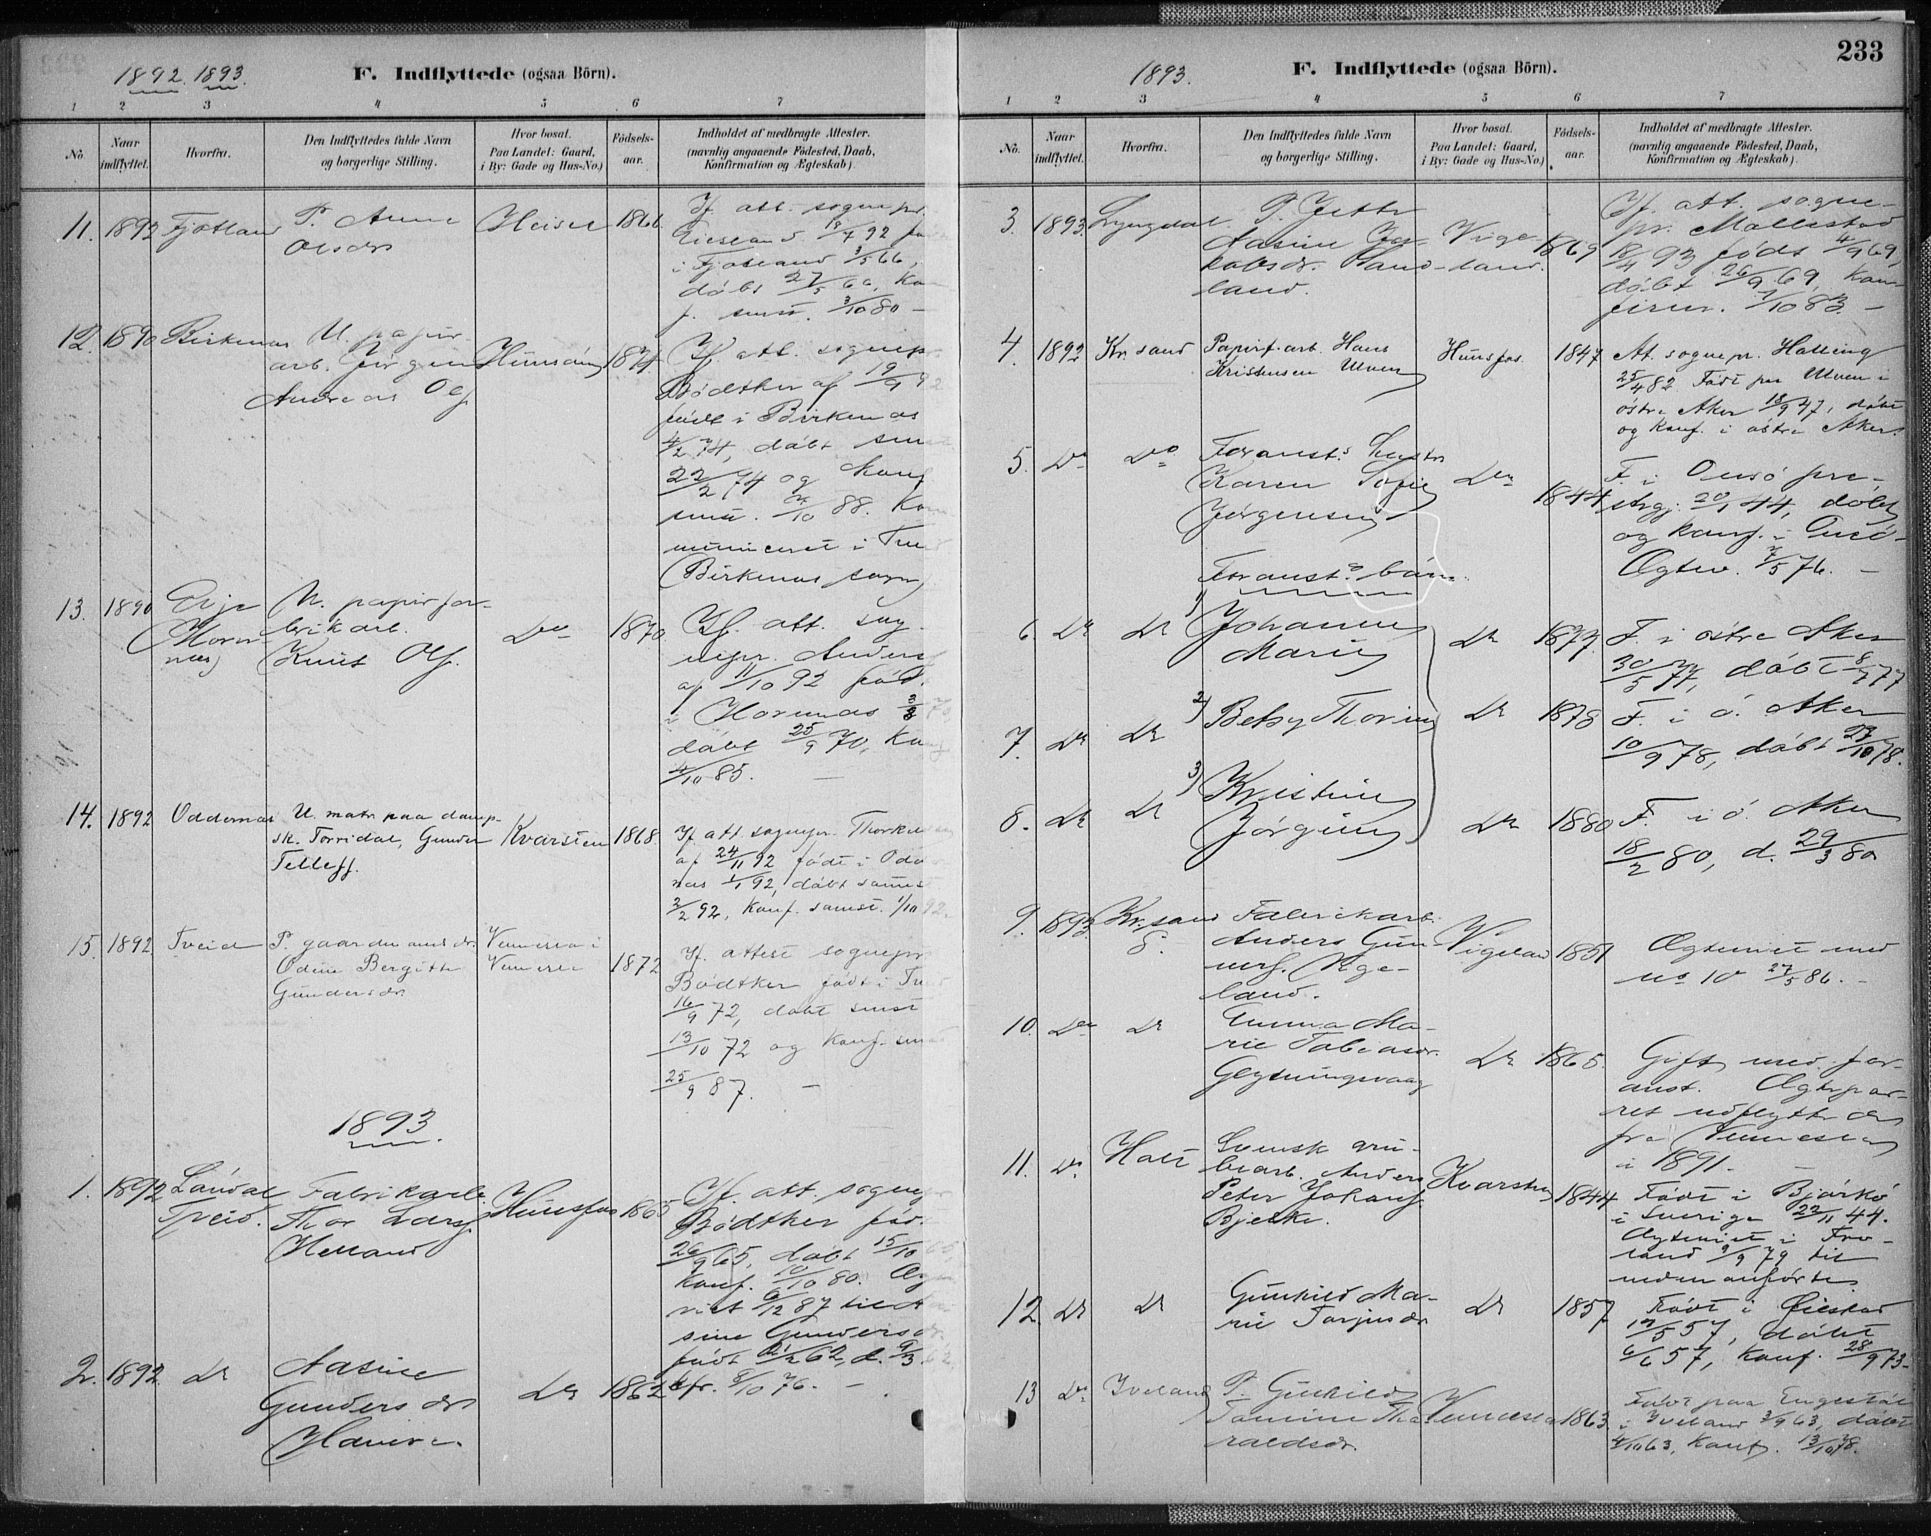 1892. 1893. F. Indflyttede (ogsaa Börn).
1 2 3 4 5 6 7
No.
Naar indflyttet.
Hvorfra.
Den Indflyttedes fulde Navn
og borgerlige Stilling.
Hvor bosat.
Paa Landet: Gaard,
i By: Gade og Hus-No.)
Födsels-
aar.
Indholdet af medbragte Attester.
(navnlig angaaende Födested, Daab,
Konfirmation og Ægteskab)
11. 1892 Fjotland P. Anne
Olsdr
1866
att. sognepr.
18/7 92
i Fjotland 3/5 66,
döbt 27/5 66,
3/10 80 -
12. 1890 Birkenas U. papir-
arb. Jörgen
Andreas Ols.
1874
Jf. att. sognepr.
Bödtker af 19/9 92
födt i Birkenas
4/2 74, döbt
22/2 74 og
88.
i
Birkenas sogn
13. 1890
U. papirfa-
brikarb.
Knut Ols.
Do
1870
Jf. att. sog-
nepr.
af 11/10 92 född
i
döbt 25/9 70,
4/10 85. -
14. 1892 Oddernas U. matr. paa damp-
sk. Torridal, Gunder
Tellefs.
Kvarsten 1868
Jf. att. sognepr.
af 24/11 92 födt i
nas 1/1 92, döbt samst.
2/2 92, Konf. samst. 1/10 92.
15. 1892 Tveid P. gaardmandsdr.
Odine Bergitte
Gundersdr.
Vennesla i
Vennesla
1872
Jf. attest sognepr.
Bödtker födt i
16/9 72, döbt smst
13/10 72 og Konf. smst
25/9 87. -
1893.
1. 1892 Laudal
Tveid.
Fabrikarb.
Thor Lars.
Helland
Hunsfos 1865
Jf. att. sognepr
Bödtker födt
26/9 65, döbt 15/10 65,
Konf. 10/10 80.
6/12 87 til
sine Gundersdr.
födt 62, d. 9/3 62,
8/10 76. -
2. 1892. Do Aasine
Gundersdr
Do 1862
1893. F. Indflyttede (ogsaa Börn). 233
1 2 3 4 5 6 7
No.
Naar indflyttet.
Hvorfra.
Den Indflyttedes fulde Navn
og borgerlige Stilling.
Hvor bosat.
Paa Landet: Gaard,
i By: Gade og Hus-No.)
Födsels-
aar.
Indholdet af medbragte Attester.
(navnlig angaaende Födested, Daab,
Konfirmation og Ægteskab)
3. 1893. Lyngdal P. Jette
Aasine Ja-
kobsdr.
land.
Vige-
land.
1869
Jf. att. sogne-
pr. Mallestad
18/4 93 födt 4/9 69
döbt 26/9 69, Kon-
firm. 7/10 83. -
4. 1892 Kr.sand Papirf.arb. Hans
Kristensen Ulven
Hunsfos. 1847
At. sognepr. Halling
25/4 82 Födt paa Ulven i
östre Aker 18/9 47, döbt
og Konf. i östre Aker.
5. Do Do Foranst.s hustr
Karen Sofie
Jörgensen
Do
1844
F. i Onsö præ-
stegj. 20/1 44, döbt
og Konf. i Onsö -
Ægtev. 7/5 76. -
Foranst.s börn.
6. Do Do 1) Johanne
Marie
Do 1877. F. i östre Aker
30/5 77, döbt 8/7 77
7. Do Do 2) Betsy Thorine Do 1878 F. i ö. Aker
10/9 78, döbt 27/10 78.
8. Do Do 3) Kristine
Jörgine
Do 1880 F. i ö. Aker
18/2 80, d. 29/3 80
9. 1893 Kr.sand
S.
Fabrikarb.
Anders Gun-
ners. Vege-
land.
Vigeland 1851 Ægteviet med
no 10 27/5 86. -
10. Do Do Emma Ma-
rie Tobiasdr.
Do 1865. Gift med for-
anst. Ægtepar-
ret udflyttede
fra Vennesla
i 1891. -
11. Do Holt Svensk gru-
bearb. Anders
Peter Johans.
Bjelke.
Kvarsten 1844 Födt i Björkö
i Sverige 22/11 44.
Ægteviet i Fro-
land 9/9 79 til
nedenanförte
12. Do Do Gunhild Ma-
rie Torjusdr
Do 1857 Födt i Öiestad
17/5 57, döbt
6/6 57, Konf. 28/9 73 -
13 Do Iveland P. Gunhild
Tomine Tha-
raldsdr.
Vennesla 1863. Födt paa Engestöl
i Iveland 3/9 63, döbt
4/10 63, Konf. 13/10 78.